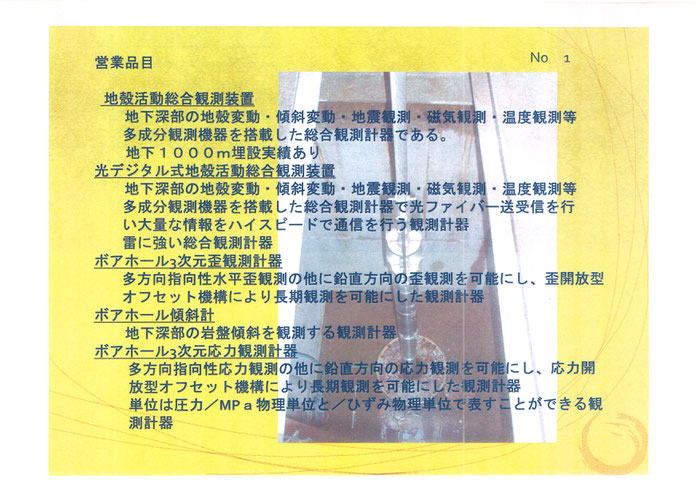 営業品目
No 1
地殻活動総合観測装置
地下深部の地殻変動・傾斜変動・地震観測・磁気観測・温度観測等
多成分観測機器を搭載した総合観測計器である。
地下１０００ｍ埋設実績あり
光デジタル式地殻活動総合観測装置
地下深部の地殻変動・傾斜変動・地震観測・磁気観測・温度観測等
多成分観測機器を搭載した総合観測計器で光ファイバー送受信を行
い大量な情報をハイスピードで通信を行う観測計器
雷に強い総合観測計器
ボアホール3次元歪観測計器
多方向指向性水平歪観測の他に鉛直方向の歪観測を可能にし、歪開放型
オフセット機構により長期観測を可能にした観測計器
ボアホール傾斜計
地下深部の岩盤傾斜を観測する観測計器
ボアホール3次元応力観測計器
多方向指向性応力観測の他に鉛直方向の応力観測を可能にし、応力開
放型オフセット機構により長期観測を可能にした観測計器
単位は圧力／MPａ物理単位と／ひずみ物理単位で表すことができる観
測計器